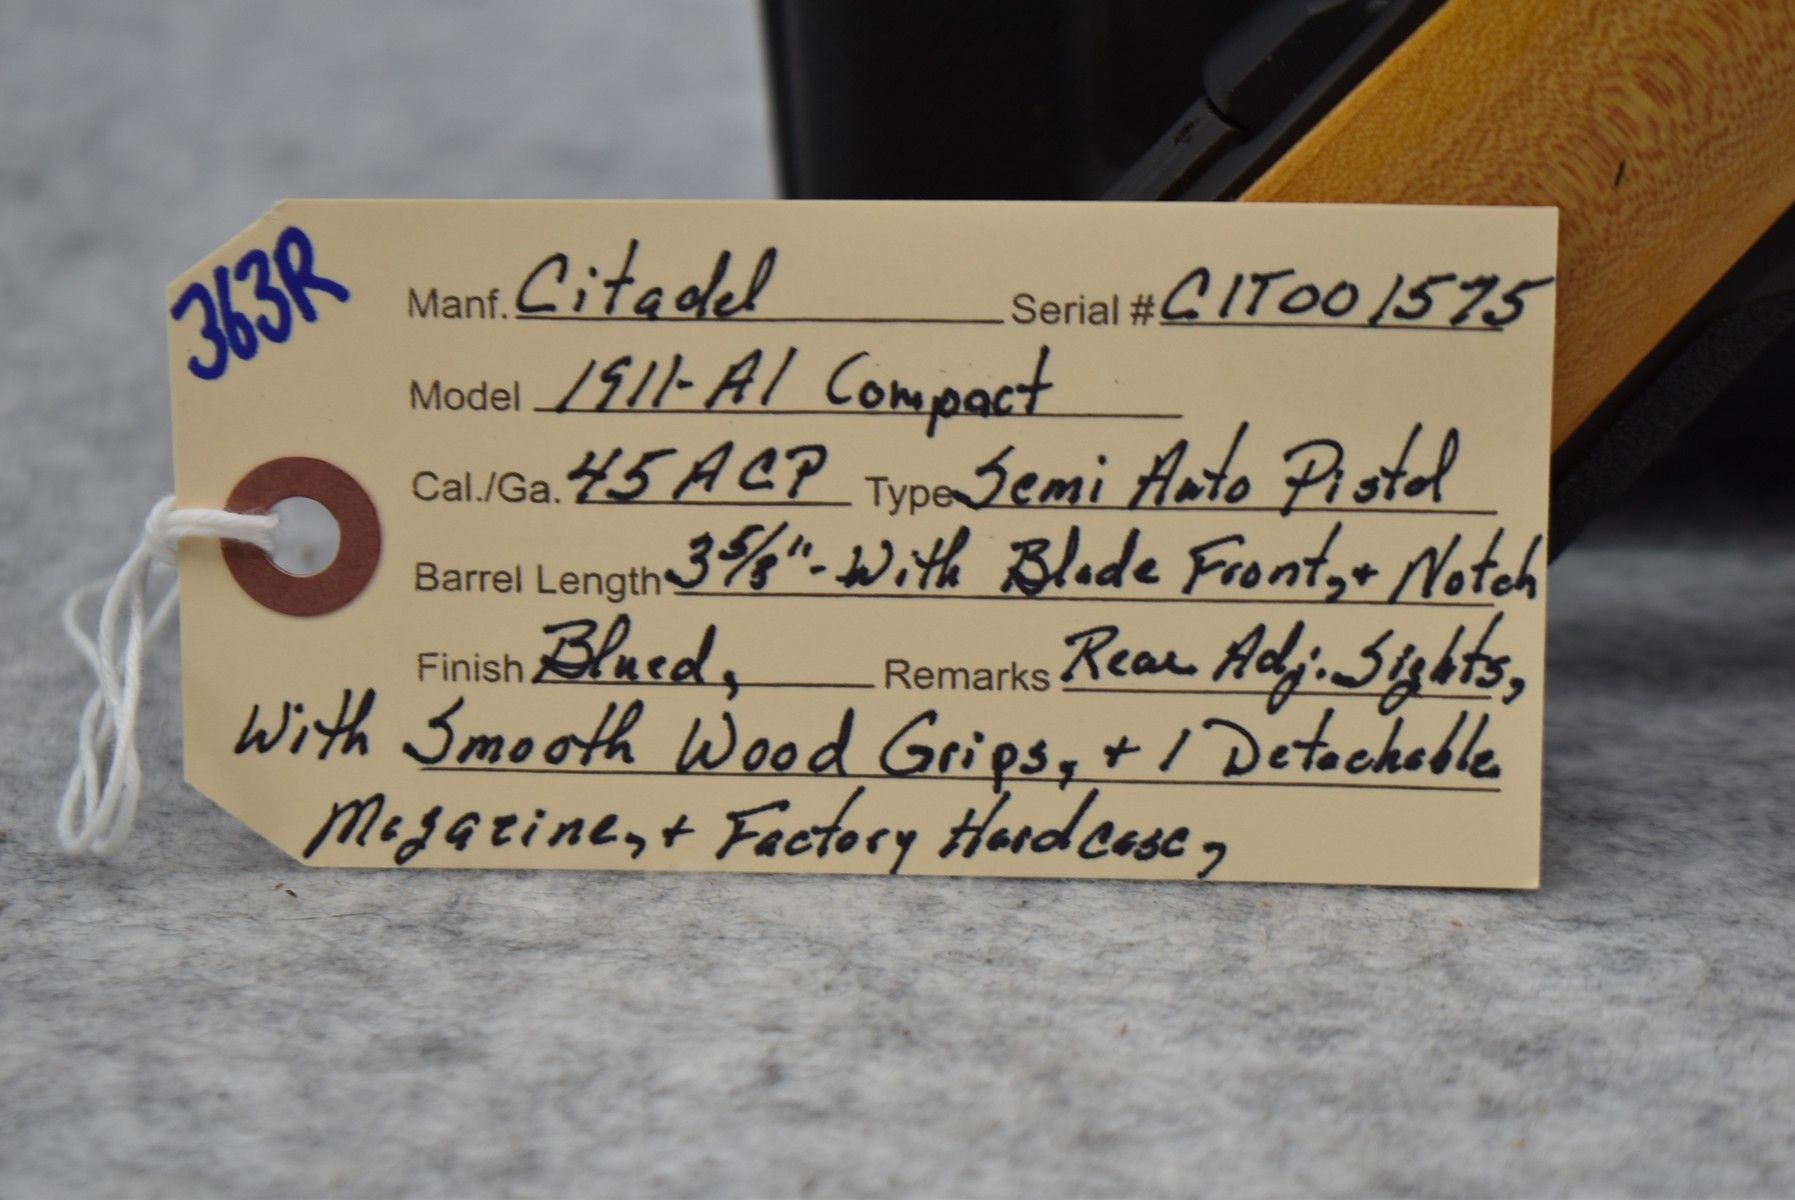 363R
Manf. Citadel Serial # CIT001575
Model 1911-A1 Compact
Cal./Ga. 45 ACP Type Semi Auto Pistol
Barrel Length 3 5/8" - With Blade Front, + Notch
Finish Blued, Remarks Rear Adj. Sights,
With Smooth Wood Grips, + 1 Detachable
Magazine, + Factory Hardcase,